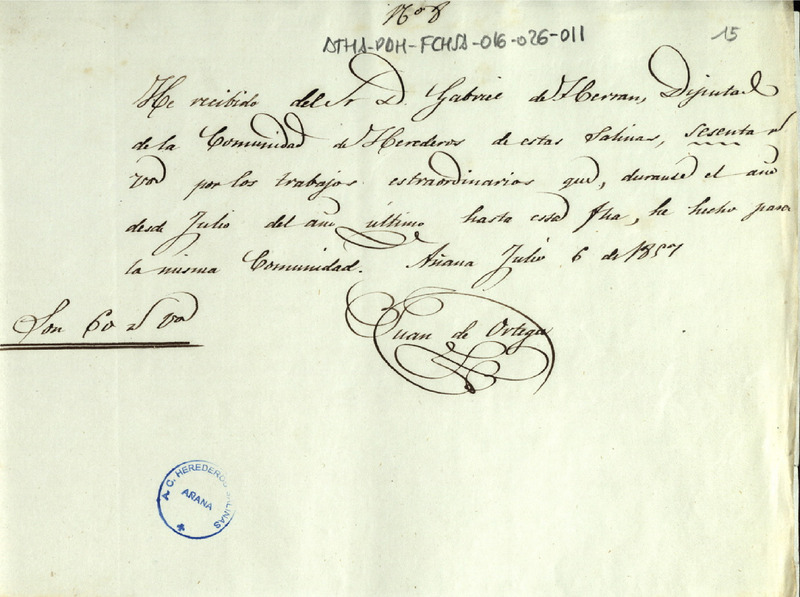 Nº 8
ATHA-PDH-FCHSA-016-026-011
15
He recibido del Sr D. Gabriel de Herran, Diputado
de la Comunidad de Herederos de estas Salinas, sesenta rs
von por los trabajos estraordinarios que, durante el año
desde Julio del año último hasta esta fha, he hecho para
la misma Comunidad. Añana Julio 6 de 1857
Juan de Ortega
Son 60 rs von
A. C. HEREDEROS SALINAS
AÑANA